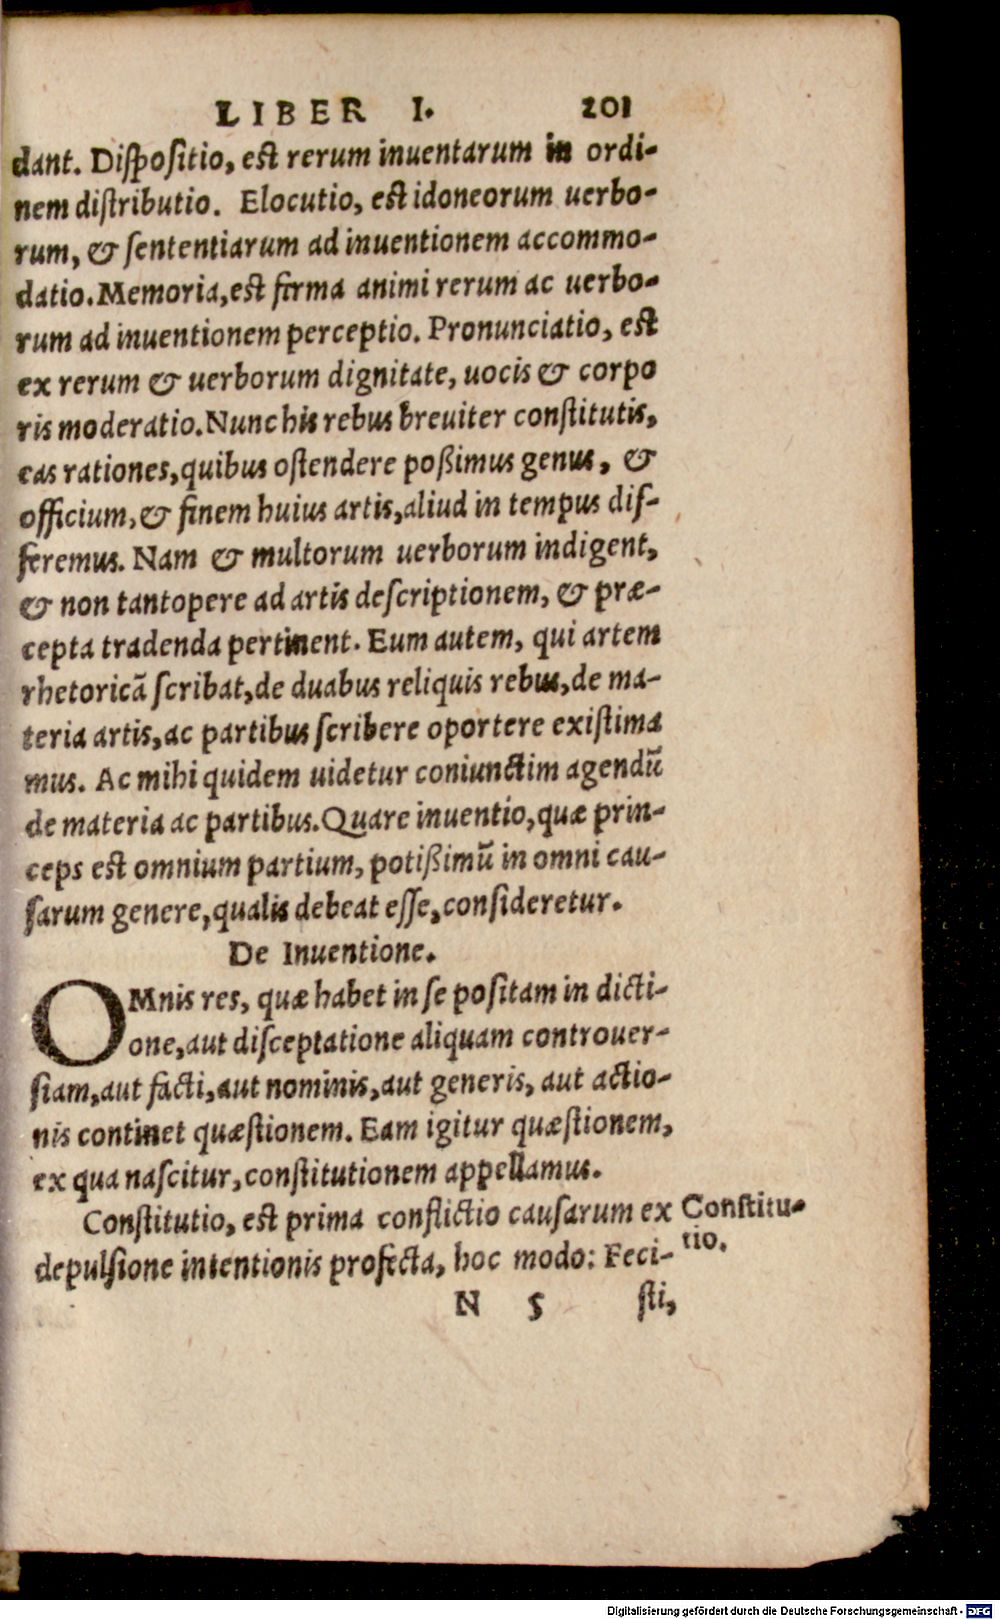 LIBER I. 201
dant. Diſpoſitio, eſt rerum inuentarum in ordi-
nem diſtributio. Elocutio, eſt idoneorum uerbo-
rum, & ſententiarum ad inuentionem accommo-
datio. Memoria, eſt firma animi rerum ac uerbo-
rum ad inuentionem perceptio. Pronunciatio, eſt
ex rerum & uerborum dignitate, uocis & corpo
ris moderatio. Nunc his rebus breuiter conſtitutis,
eas rationes, quibus oſtendere poßimus genus, &
officium, & finem huius artis, aliud in tempus dif-
feremus. Nam & multorum uerborum indigent,
& non tantopere ad artis deſcriptionem, & præ-
cepta tradenda pertinent. Eum autem, qui artem
rhetoricã ſcribat, de duabus reliquis rebus, de ma-
teria artis, ac partibus ſcribere oportere exiſtima
mus. Ac mihi quidem uidetur coniunctim agendũ
de materia ac partibus. Quare inuentio, quæ prin-
ceps eſt omnium partium, potißimũ in omni cau-
ſarum genere, qualis debeat eſſe, conſideretur.
De Inuentione.
OMnis res, quæ habet in ſe poſitam in dicti-
one, aut diſceptatione aliquam controuer-
ſiam, aut facti, aut nominis, aut generis, aut actio-
nis continet quæſtionem. Eam igitur quæſtionem,
ex qua naſcitur, conſtitutionem appellamus.
Conſtitutio, eſt prima conflictio cauſarum ex
depulſione intentionis profecta, hoc modo: Feci-
Conſtitu-
tio.
N 5 ſti,
Digitalisierung gefördert durch die Deutsche Forschungsgemeinschaft - DFG